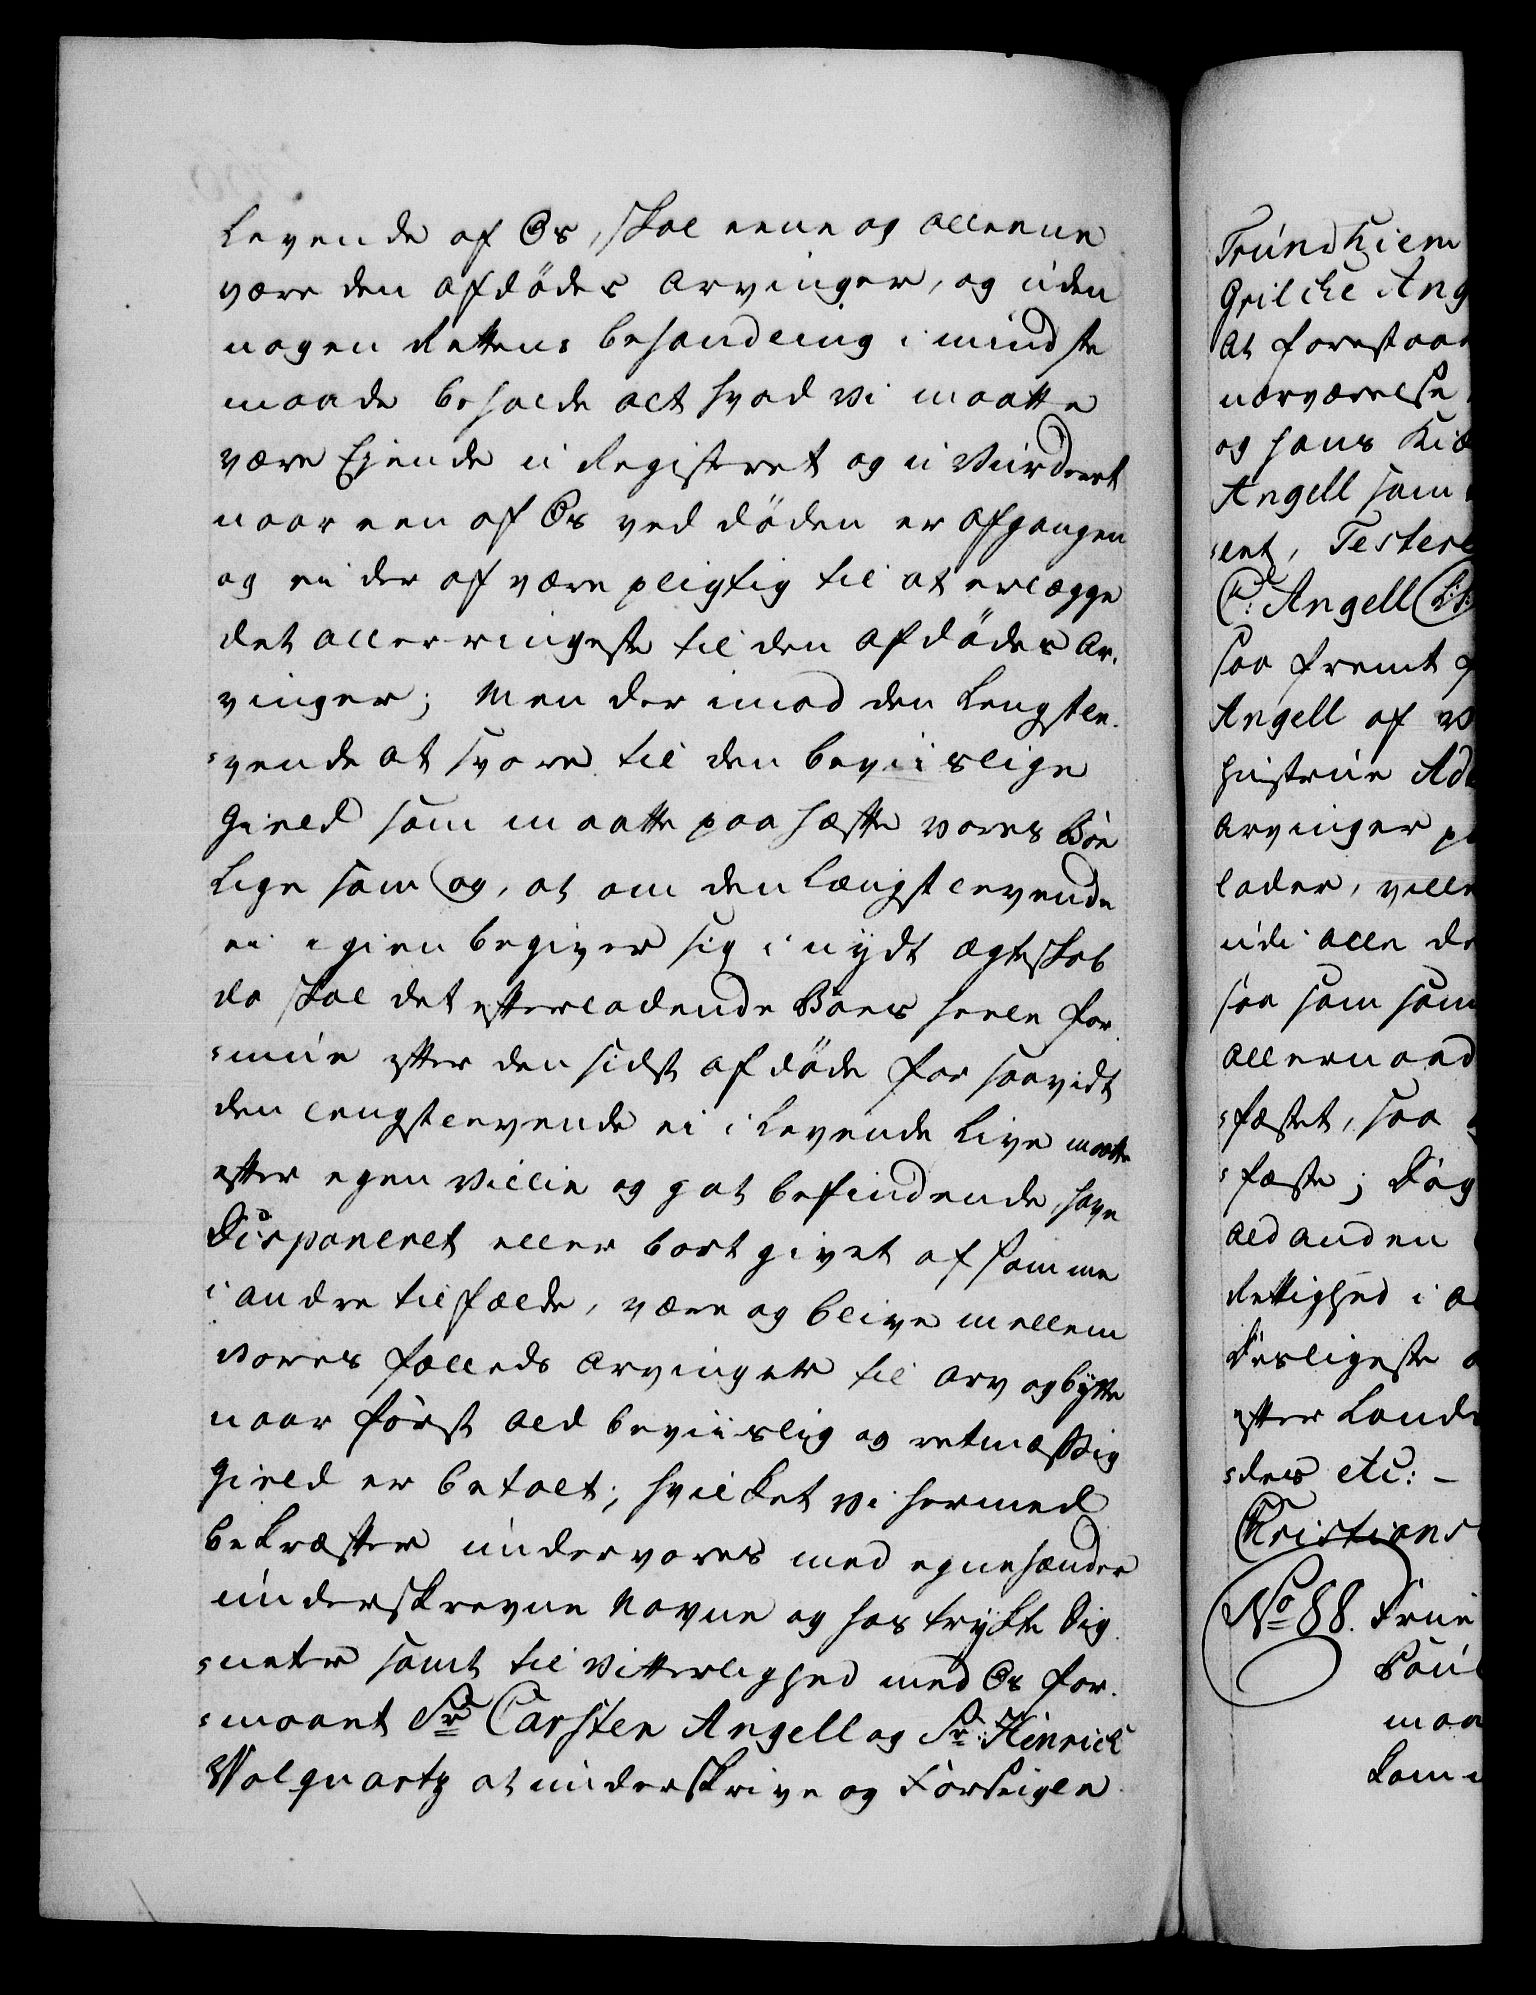 Levende af Os, skal eene og alleene
være den afdødes Arvinger, og uden
nogen Rettens behandling i mindste
maade beholde alt hvad vi maatte
være Ejende u Registeret og u vurderet
naar een af Os ved døden er afgangen
og ei der af være pligtig til at erlægge
det allerringeste til den afdødes Ar,
vinger; Men der imod den Lengstle,
vende at svare til den beviislige
Gield som maatte paa hæfte vores Boe
Lige som og, at om den længst levende
ei igien begiver sig i nydt ægteskab
da skal det efterladende Boes heele for
mue efter den sidst afdøde for saavidt
den lengstlevende ei i Levende Live maatte
efter egen Villie og got befindende have
Disponeret eller bort givet af samme
i andre tilfælde, være og blive mellem
vores fælleds Arvinger til Arv og bytte
naar først ald beviislig og retmæssig
Gield er betalt; hvilket vi hermed
bekræfter under vores med egne hænder
underskrevne Navne og hos trykte Sig
neter samt til vitterlighed med Os for,
maaet Sr. Carsten Angell og Sr. Hinrich
Volquartz at underskrive og Forseigle
Grilche Ang
At forestaa
nærværelse
og hans Kiæ
Angell som
ent, Teste
C: Angell (L:S:
saa fremt
Angell af
hustrue Ad
Arvinger
lader, ville
udi alle
saa som sam
allernaad
fæstet, saa
fæste; Dog
ald anden
Rettighed i
Desligeste
efter Land
des etc: –
Christians
No 88. Frue
Poul
maa